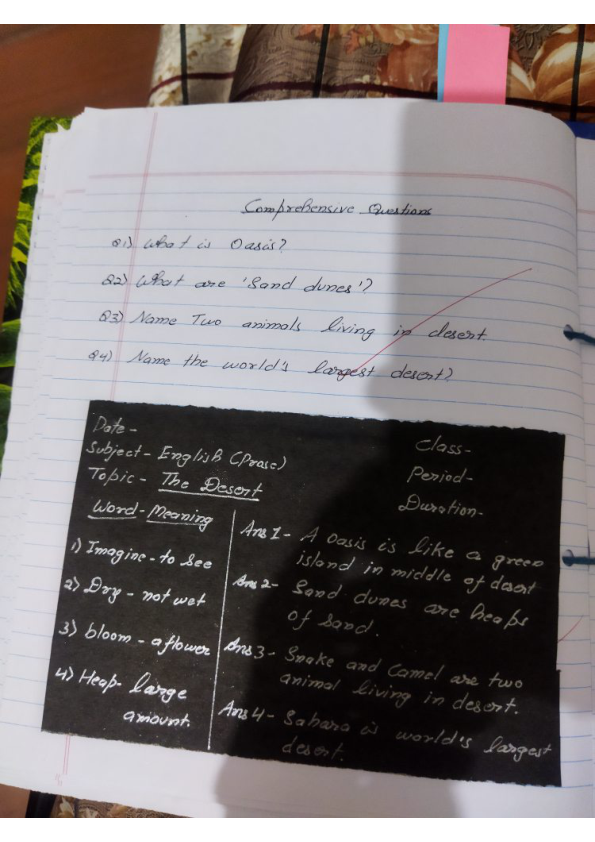 Comprehensive Questions
Q1) What is Oasis?
Q2) What are 'Sand dunes'?
Q3) Name Two animals living in desert.
Q4) Name the world's largest desert?
Date-
Subject- English (Prose)
Topic- The Desert
Class-
Period-
Duration-
Word-Meaning
1) Imagine- to see
2) Dry - not wet
3) bloom - a flower
4) Heap- large
amount.
Ans 1- A Oasis is like a green
island in middle of desert
Ans 2- Sand dunes are heaps
of sand.
Ans 3- Snake and Camel are two
animal living in desert.
Ans 4- Sahara is world's largest
desert.